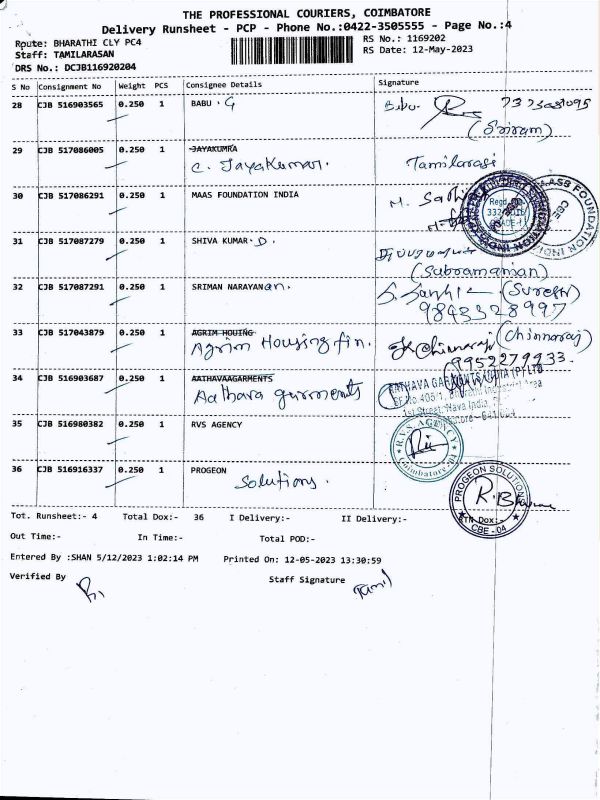 THE PROFESSIONAL COURIERS, COIMBATORE
Delivery Runsheet - PCP - Phone No.:0422-3505555 - Page No.:4
Route: BHARATHI CLY PC4
RS No.: 1169202
Staff: TAMILARASAN
RS Date: 12-May-2023
DRS No.: DCJB116920204
S No Consignment No Weight PCS Consignee Details Signature
28 CJB 516903565 0.250 1 BABU . G Babu.
(Sriram)
29 CJB 517086005 0.250 1 JAYAKUMRA
C. Jayakumar. Tamilarasi
30 CJB 517086291 0.250 1 MAAS FOUNDATION INDIA
31 CJB 517087279 0.250 1 SHIVA KUMAR. D.
(Subramanian)
32 CJB 517087291 0.250 1 SRIMAN NARAYANan. (Suresh)
9843328997
33 CJB 517043879 0.250 1 AGRIM HOUING
Agrim Housing fin. (Chinnaraj)
9952279933.
34 CJB 516903687 0.250 1 AATHAVAAGARMENTS
Aathava garments
35 CJB 516980382 0.250 1 RVS AGENCY
R.V.S. AGENCY
Coimbatore
36 CJB 516916337 0.250 1 PROGEON
Solutions.
PROGEON SOLUTIONS
CBE-04
Tot. Runsheet:- 4 Total Dox:- 36 I Delivery:- II Delivery:- Dox:-
Out Time:- In Time:- Total POD:-
Entered By :SHAN 5/12/2023 1:02:14 PM Printed On: 12-05-2023 13:30:59
Verified By
Staff Signature Tamil